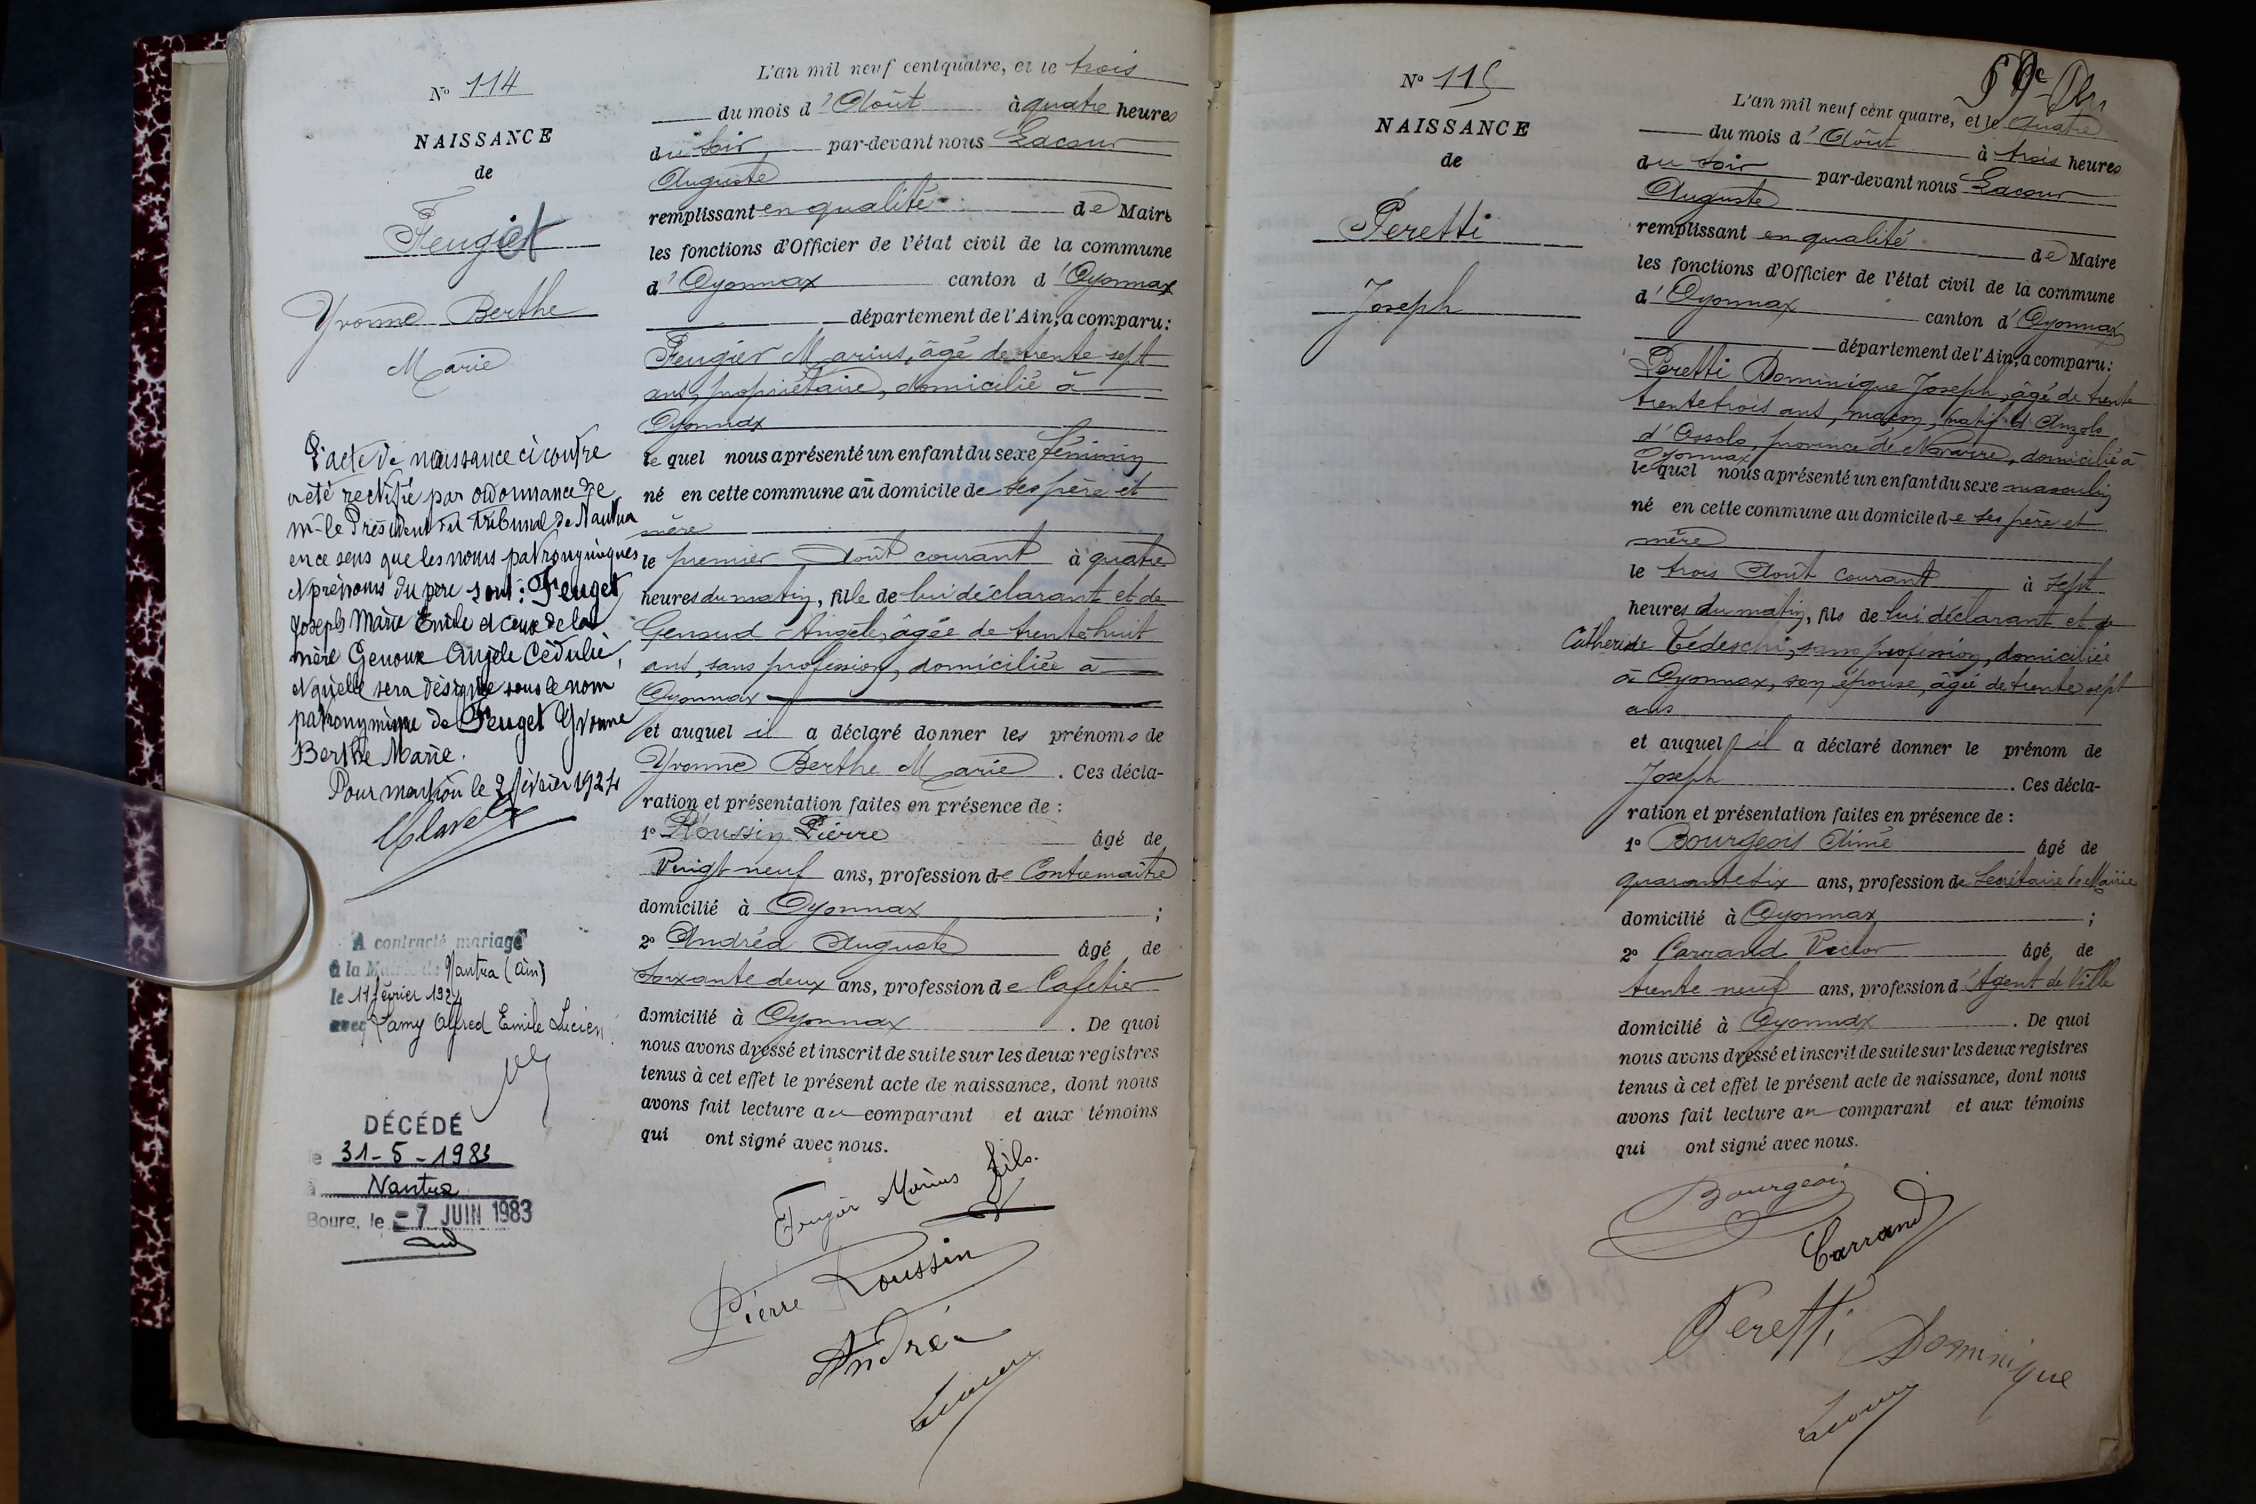 N° 114
NAISSANCE
de
Feugiet
Yvonne Berthe
Marie
L'acte de naissance ci contre
a été rectifié par ordonnance de
Mr le Président du tribunal de Nantua
en ce sens que les noms patronymiques
et prénoms du père sont : Feuget
Joseph Marie Emile et ceux de la
mère Genoux Angèle Cédulie,
et qu'elle sera désignée sous le nom
patronymique de Feuget Yvonne
Berthe Marie.
Pour mention le 2 février 1924
A contracté mariage
à la Mairie de Nantua (Ain)
le 11 février 1924
avec Lamy Alfred Emile Lucien.
DÉCÉDÉ
le 31-5-1983
à Nantua
Bourg, le -7 JUIN 1983
L'an mil neuf cent quatre, et le trois
du mois d'Août à quatre heures
du soir par-devant nous Lacour
Auguste
remplissant en qualité de Maire
les fonctions d'Officier de l'état civil de la commune
d'Oyonnax canton d'Oyonnax
département de l'Ain, a comparu :
Feugier Marius, âgé de trente sept
ans, propriétaire, domicilié à
Oyonnax
lequel nous a présenté un enfant du sexe féminin
né en cette commune au domicile de ses père et
mère
le premier Août courant à quatre
heures du matin, fille de lui déclarant et de
Genoud Angèle, âgée de trente huit
ans, sans profession, domiciliée à
Oyonnax
et auquel il a déclaré donner les prénoms de
Yvonne Berthe Marie. Ces décla-
ration et présentation faites en présence de :
1° Roussin Pierre âgé de
Vingt neuf ans, profession de Contremaître
domicilié à Oyonnax ;
2° Andréa Auguste âgé de
soixante deux ans, profession de Cafetier
domicilié à Oyonnax. De quoi
nous avons dressé et inscrit de suite sur les deux registres
tenus à cet effet le présent acte de naissance, dont nous
avons fait lecture au comparant et aux témoins
qui ont signé avec nous.
Feugier Marius fils.
Pierre Roussin
Andréa
Lacour
N° 115
NAISSANCE
de
Peretti
Joseph
L'an mil neuf cent quatre, et le quatre
du mois d'Août à trois heures
du soir par-devant nous Lacour
Auguste
remplissant en qualité de Maire
les fonctions d'Officier de l'état civil de la commune
d'Oyonnax canton d'Oyonnax
département de l'Ain, a comparu :
Peretti Dominique Joseph, âgé de trente
trente trois ans, maçon, natif d'Anzolo
d'Ossola, province de Novarre, domicilié à
Oyonnax
lequel nous a présenté un enfant du sexe masculin
né en cette commune au domicile de ses père et
mère
le trois Août courant à sept
heures du matin, fils de lui déclarant et de
Catherine Tedeschi, sans profession, domiciliée
à Oyonnax, son épouse, âgée de trente sept
ans
et auquel il a déclaré donner le prénom de
Joseph. Ces décla-
ration et présentation faites en présence de :
1° Bourgeois Aimé âgé de
quarante six ans, profession de Secrétaire de Mairie
domicilié à Oyonnax ;
2° Carrand Victor âgé de
trente neuf ans, profession d'Agent de Ville
domicilié à Oyonnax. De quoi
nous avons dressé et inscrit de suite sur les deux registres
tenus à cet effet le présent acte de naissance, dont nous
avons fait lecture au comparant et aux témoins
qui ont signé avec nous.
Bourgeois
Carrand
Peretti Dominique
Lacour